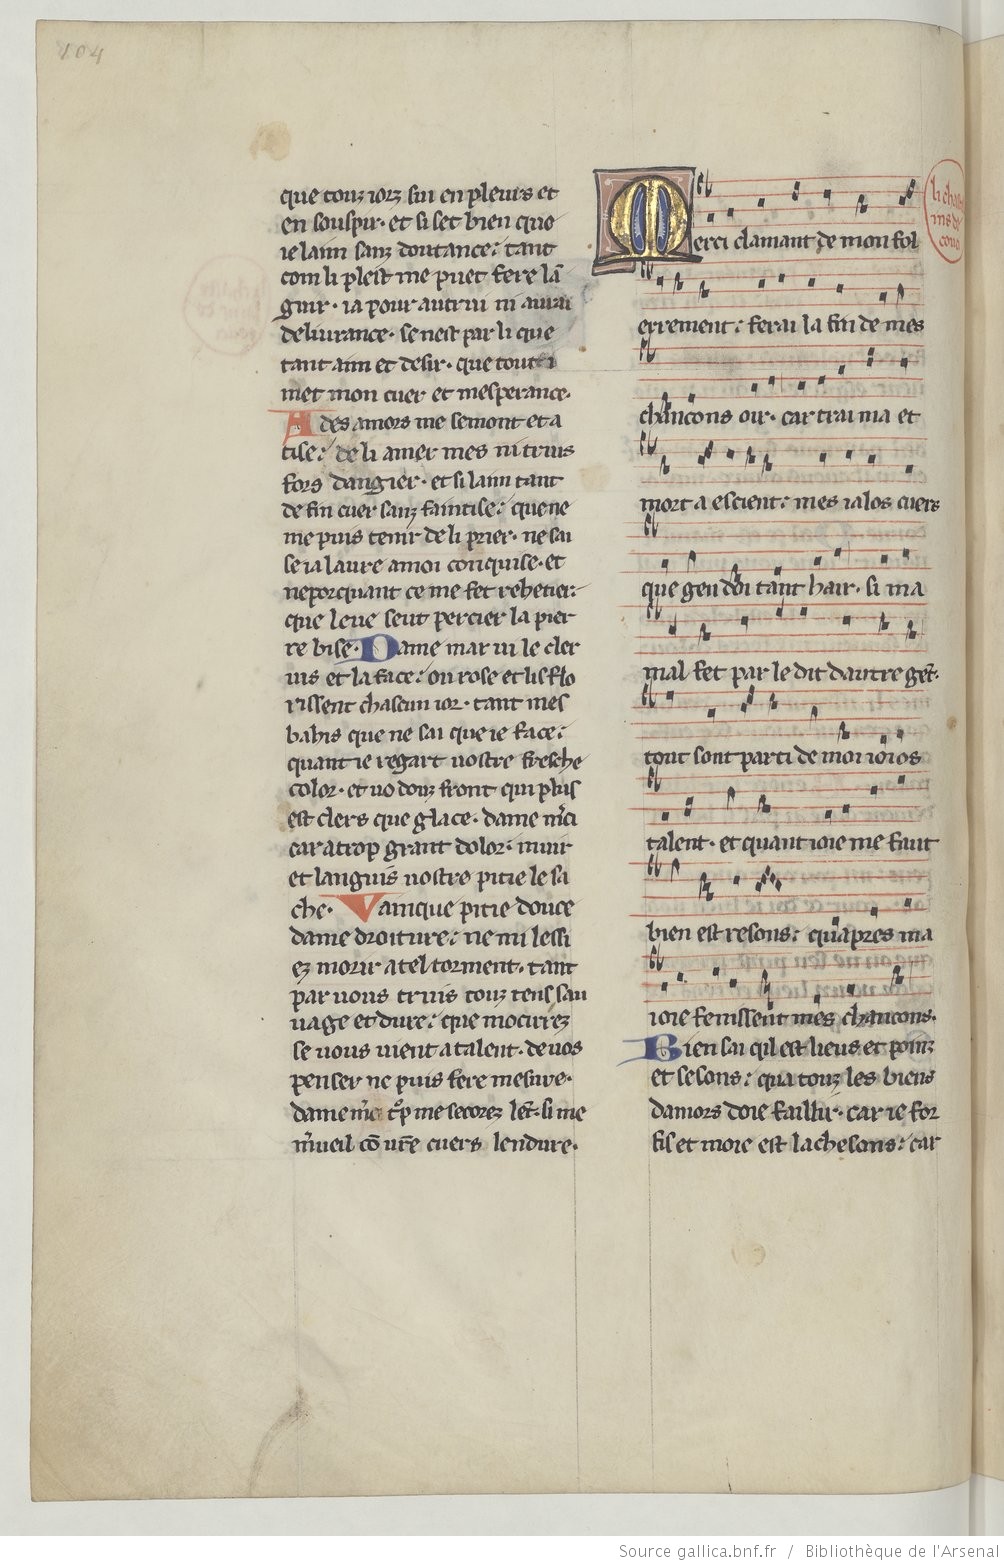 104
que touz iorz sui en pleurs et
en souspir. et si set bien que
ie laim sanz doutance: tant
com li plest me puet fere lā
guir. ia pour autrui ni aurai
deliurance. se nest par li que
tant aim et desir. que tout i
met mon cuer et mesperance.
Ades amors me semont et a
tise: de li amer mes ni truis
fors dangier. et si laim tant
de fin cuer sanz faintise: que ne
me puis tenir de li prier. ne sai
se ia laure amoi conquise. et
neporquant ce me fet rehetier:
que leue seut percier la pier
re bise. Dame mar ui le cler
uis et la face: ou rose et lis flo
rissent chascun ior. tant mes
bahis que ne sai que ie face:
quant ie regart uostre fresche
color. et uo douz front qui plus
est clers que glace. dame m̄ci
car a trop grant dolor. muir
et languis uostre pitie le sa
che. Vainque pitie douce
dame droiture: ne mi lessi
ez morir a tel torment. tant
par uous truis touz tens sau
uage et dure: que mocirrez
se uous uient a talent. de uos
penser ne puis fere mesure.
dame m̄ci tͦp me secorez let̄. si me
m̄ueil cō ur̄e cuers lendure.
Merci clamant de mon fol
li chas
ins de
couci
errement: ferai la fin de mes
chancons oir. car trai ma et
mort a escient: mes ialos cuers
que gen doi tant hair. si ma
mal fet par le dit dautre get̄.
tout sont parti de moi ioios
talent. et quant ioie me faut
bien est resons: quapres ma
ioie fenissent mes chancons.
Bien sai qil est lieus et poinz
et sesons: qua touz les biens
damors doie faillir. car ie for
fis et moie est lachesons: car
Source gallica.bnf.fr / Bibliothèque de l'Arsenal